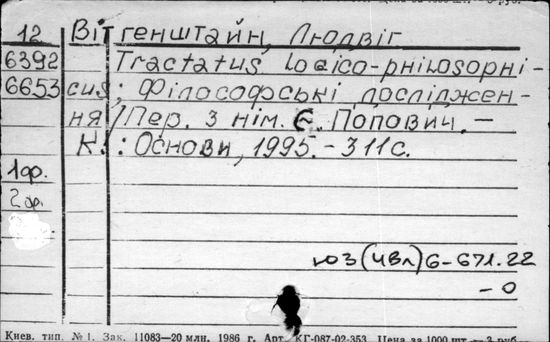 12 Вітгенштайн, Людвіг
6392 Tractatus logico-philosophi-
6653 cus; Філософські досліджен-
ня/Пер. з нім. Є. Попович.–
К.: Основи, 1995.–311с.
1ф.
2 ф.
юз(чвл)6–671.22
–0
Киев. тип. № 1. Зак. 11083—20 млн. 1986 г. Арт. КГ-087-02-353. Цена за 1000 шт.— 3 руб.